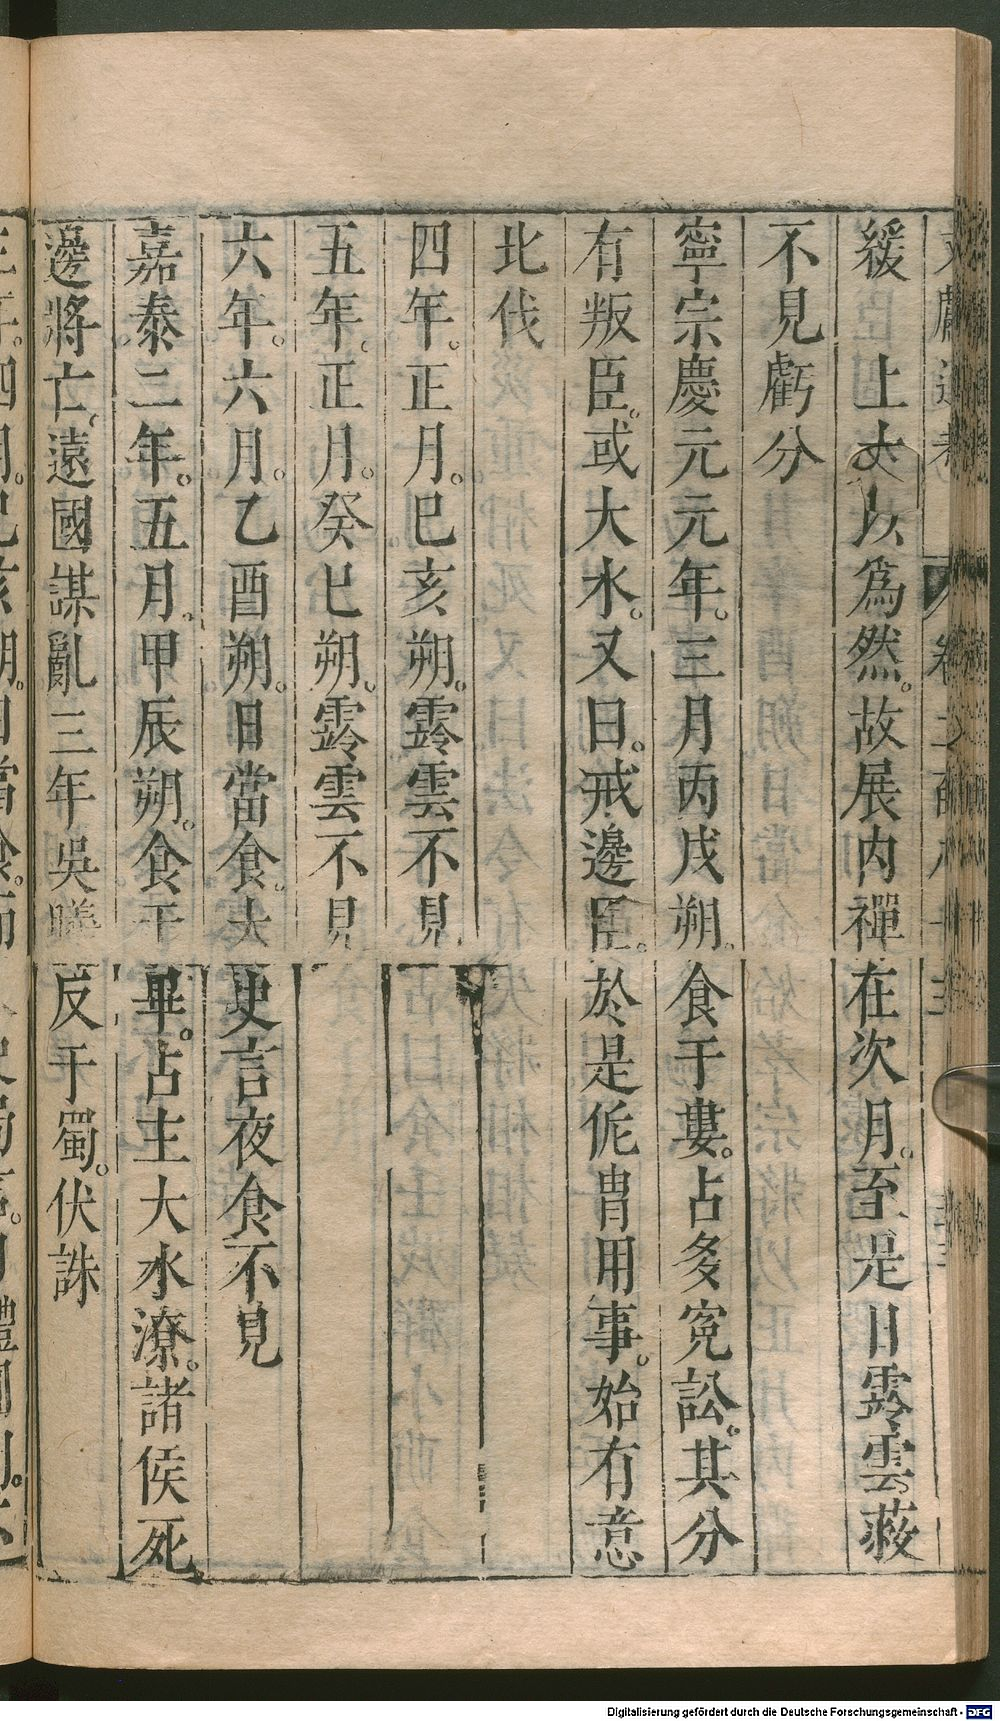 文獻通考 卷之二百八十三
緩　上大以為然。故展内禪在次月。至是日霒雲蔽
不見虧分
寧宗慶元元年。三月丙戌朔。食于婁。占多寃訟。其分
有叛臣。或大水。又曰。戒邊臣。於是侂胄用事。始有意
北伐
四年。正月。巳亥朔。霒雲不見
五年。正月。癸巳朔。霒雲不見
六年。六月。乙酉朔。日當食。太史言夜食不見
嘉泰二年。五月。甲辰朔。食于畢。占主大水潦。諸侯死
邊將亡。遠國謀亂三年吳曦反于蜀。伏誅
Digitalisierung gefördert durch die Deutsche Forschungsgemeinschaft - DFG